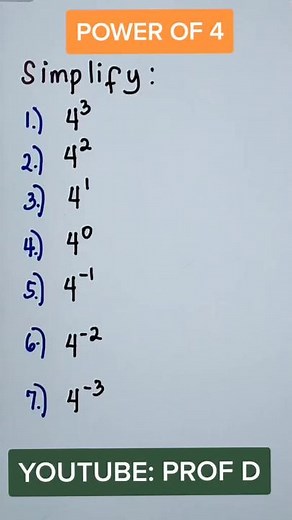 POWER OF 4
Simplify:
1.) 4³
2.) 4²
3.) 4¹
4.) 4⁰
5.) 4⁻¹
6.) 4⁻²
7.) 4⁻³
YOUTUBE: PROF D